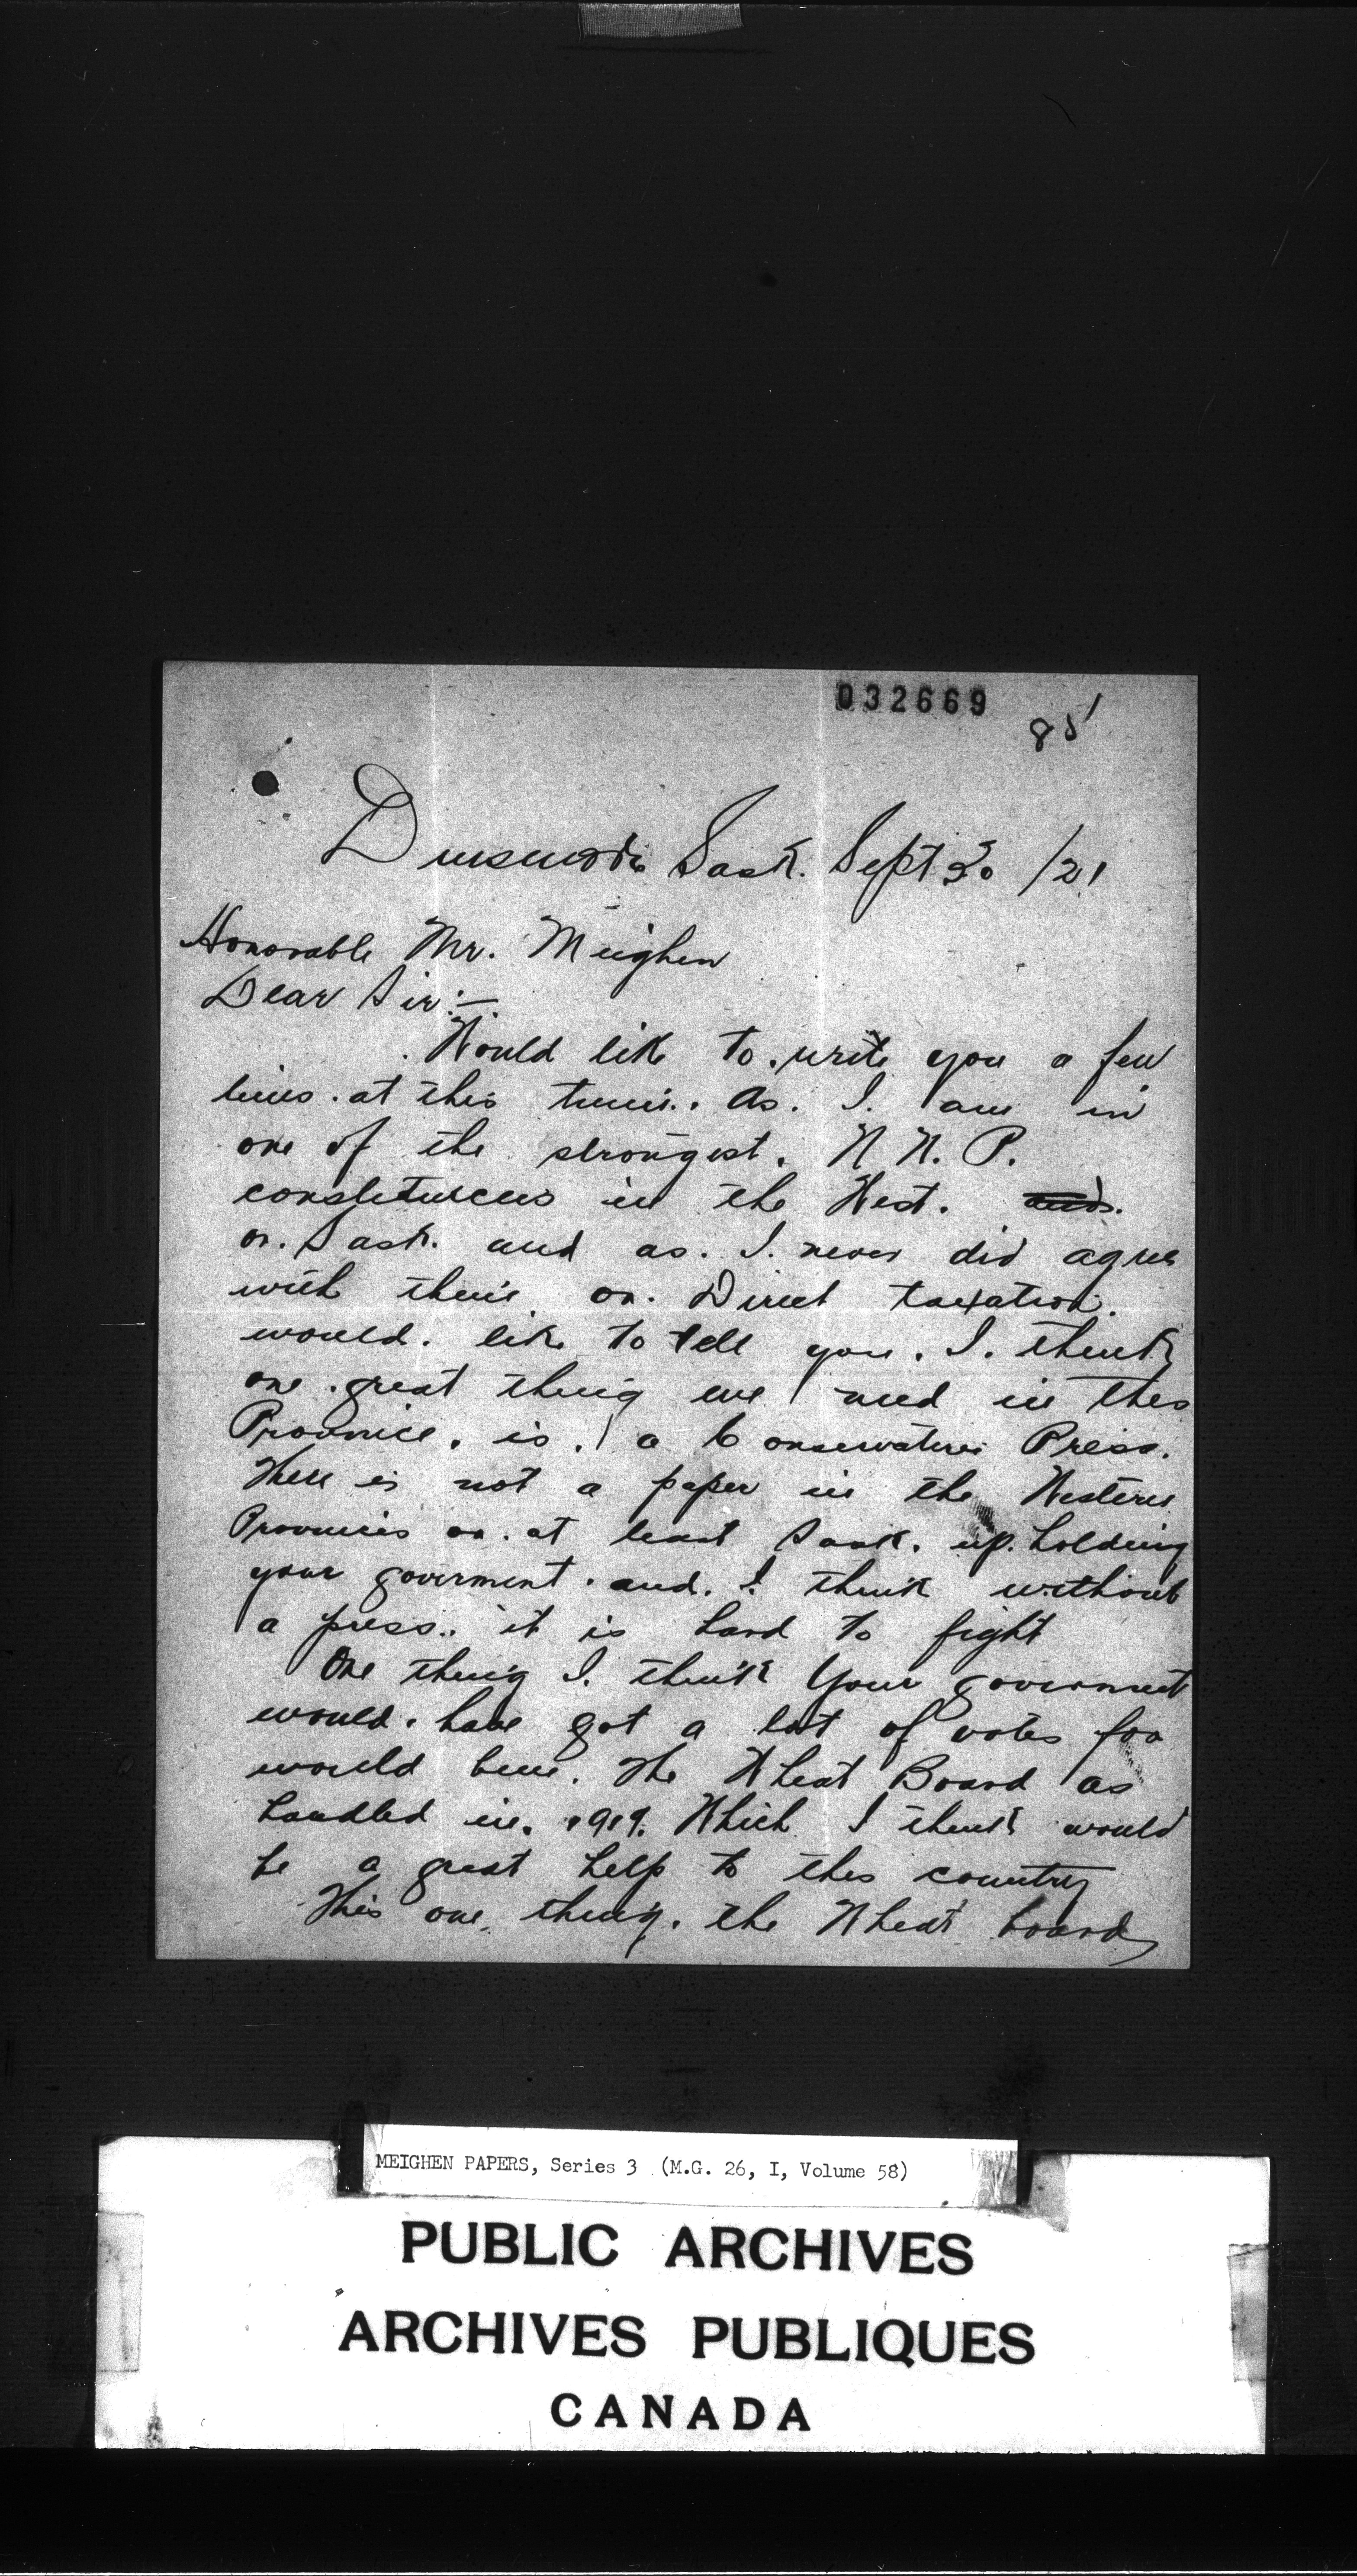 032669
85
Dinsmore Sask. Sept 30 /21
Honorable Mr. Meighen
Dear Sir:—
Would like to write you a few
lines at this time. As. I. am in
one of the strongest. N. N. P.
constituences in the West. and.
or. Sask. and as. I. never did agree
with their on. Direct taxation.
would. like to tell you. I. think
one great thing we need in this
Province. is. a Conservative Press.
There is not a paper in the Western
Provinces or. at least Sask. up. holding
your goverment. and. I. think without
a press. it is hard to fight
One thing I. think Your government
would. have got a lot of votes for
would been. The Wheat Board as
handled in. 1919. Which I think would
be a great help to this country
This one thing. the Wheat board
MEIGHEN PAPERS, Series 3 (M.G. 26, I, Volume 58)
PUBLIC ARCHIVES
ARCHIVES PUBLIQUES
CANADA